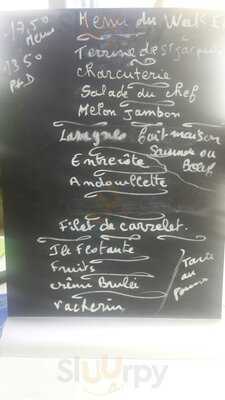 17,50 Menu
13,50 P&D
Menu du Wek E
Terrine de St Jacques
Charcuterie
Salade du chef
Melon Jambon
Lasagnes fait maison
Saumon ou Boeuf
Entrecôte
Andouillette
Filet de carrelet.
Ile flotante
Fruits
crème Brulée
Vacherin
Tarte au
Sluurpy